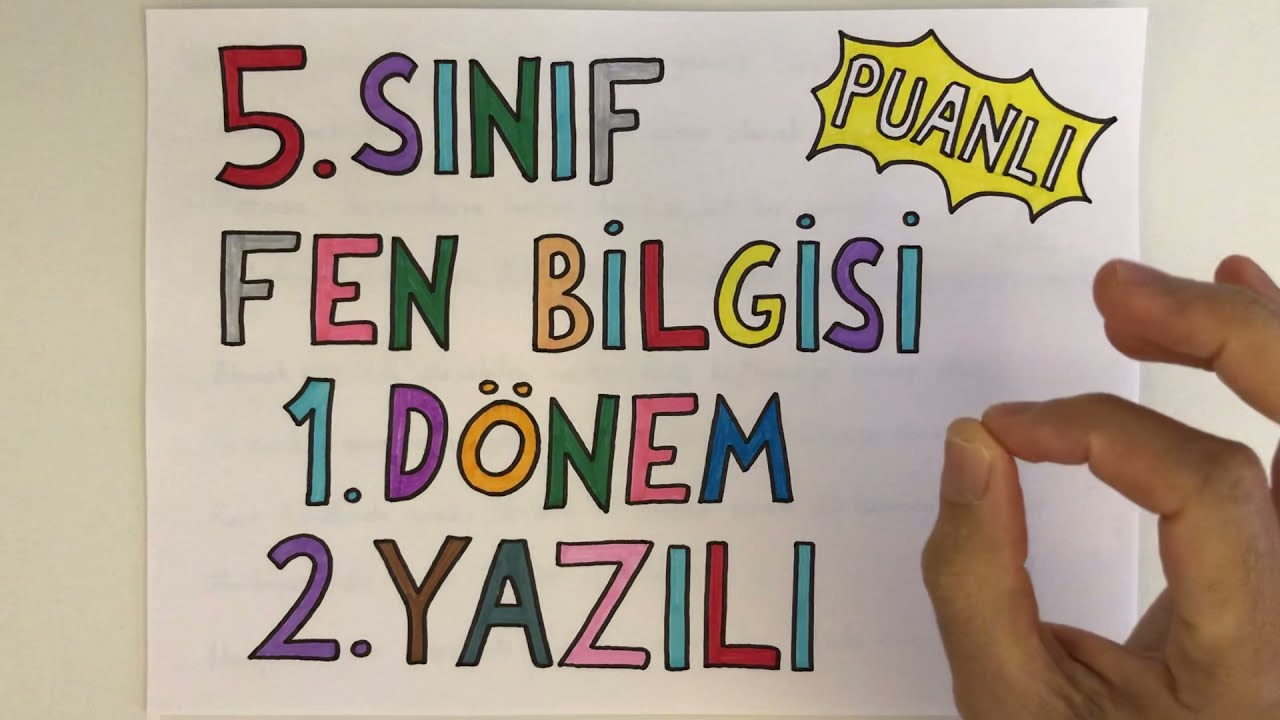 5. SINIF
PUANLI
FEN BİLGİSİ
1. DÖNEM
2. YAZILI